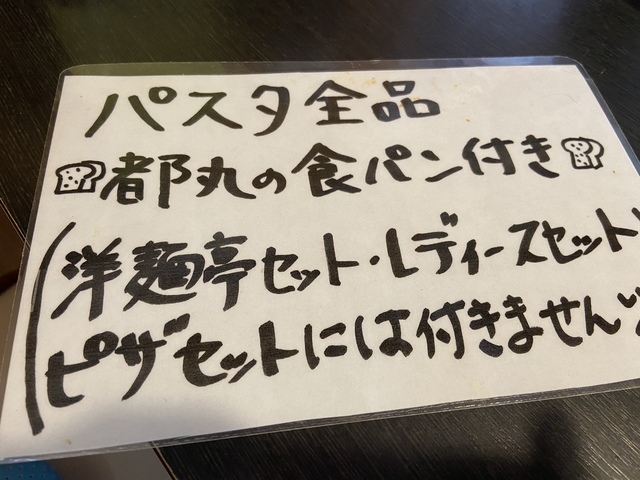 パスタ全品
都丸の食パン付き
(洋麺亭セット・レディースセット
ピザセットには付きません)